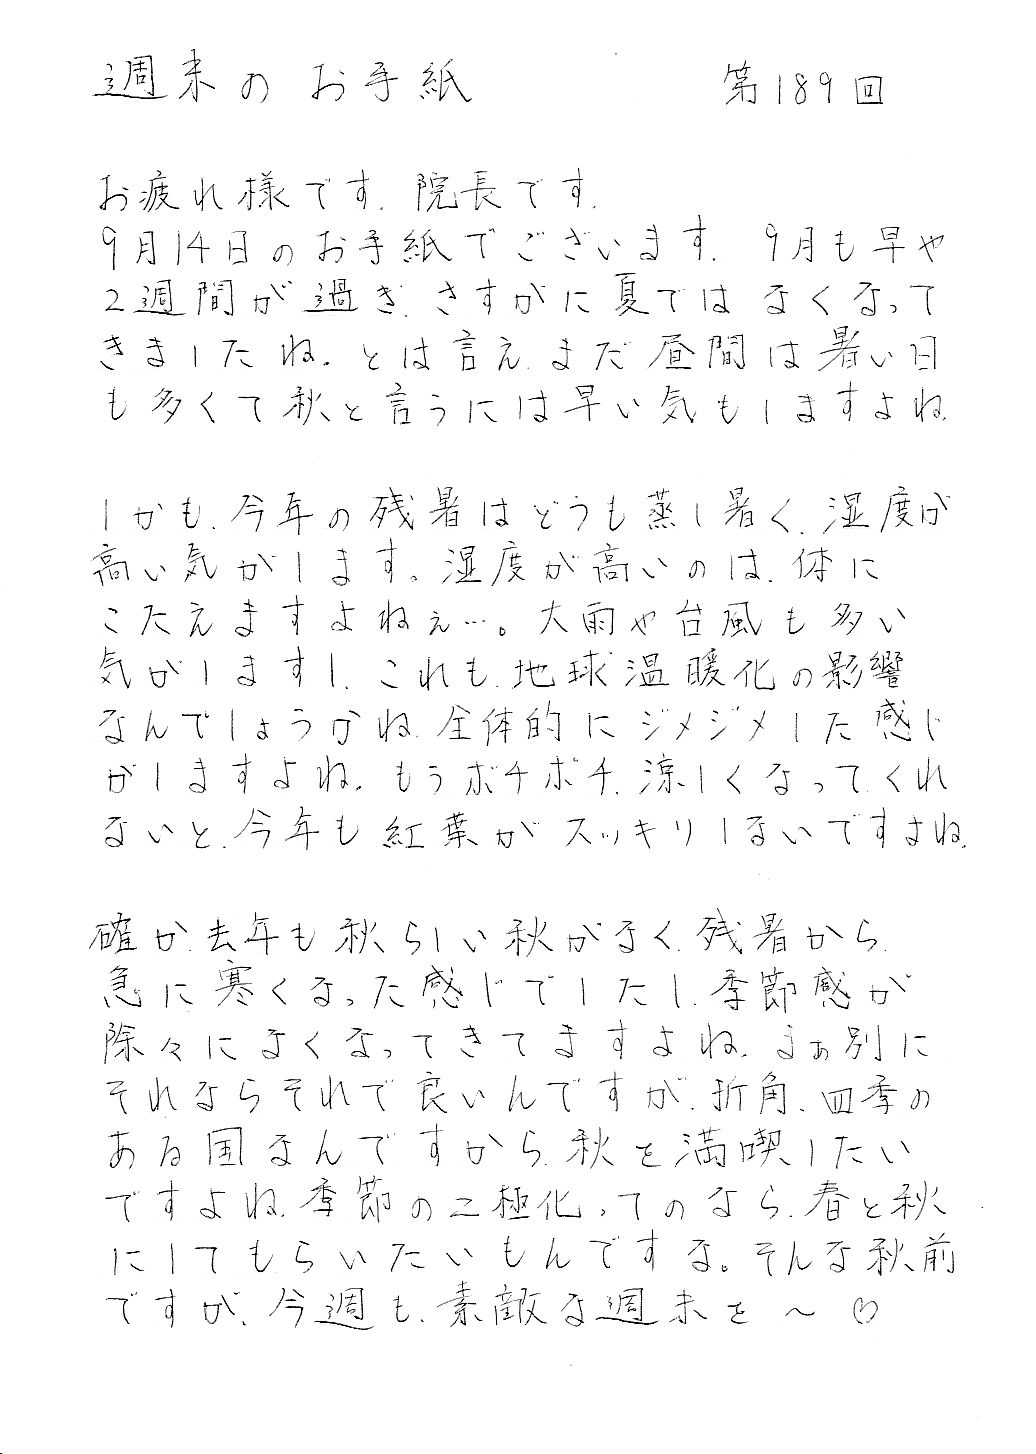 週末のお手紙 第189回
お疲れ様です. 院長です.
9月14日のお手紙でございます. 9月も早や
2週間が過ぎ、さすがに夏ではなくなって
きましたね。とは言え、まだ昼間は暑い日
も多くて秋と言うには早い気もしますよね.
しかも、今年の残暑はどうも蒸し暑く、湿度が
高い気がします。湿度が高いのは、体に
こたえますよねぇ…。大雨や台風も多い
気がしますし、これも、地球温暖化の影響
なんでしょうかね、全体的にジメジメした感じ
がしますよね。もうボチボチ、涼しくなってくれ
ないと、今年も紅葉がスッキリしないですよね.
確か、去年も秋らしい秋がなく、残暑から、
急に寒くなった感じでしたし、季節感が
除々になくなってきてますよね、まぁ別に
それならそれで良いんですが、折角、四季の
ある国なんですから、秋を満喫したい
ですよね、季節の二極化ってのなら、春と秋
にしてもらいたいもんですな。そんな秋前
ですが、今週も、素敵な週末を〜♡